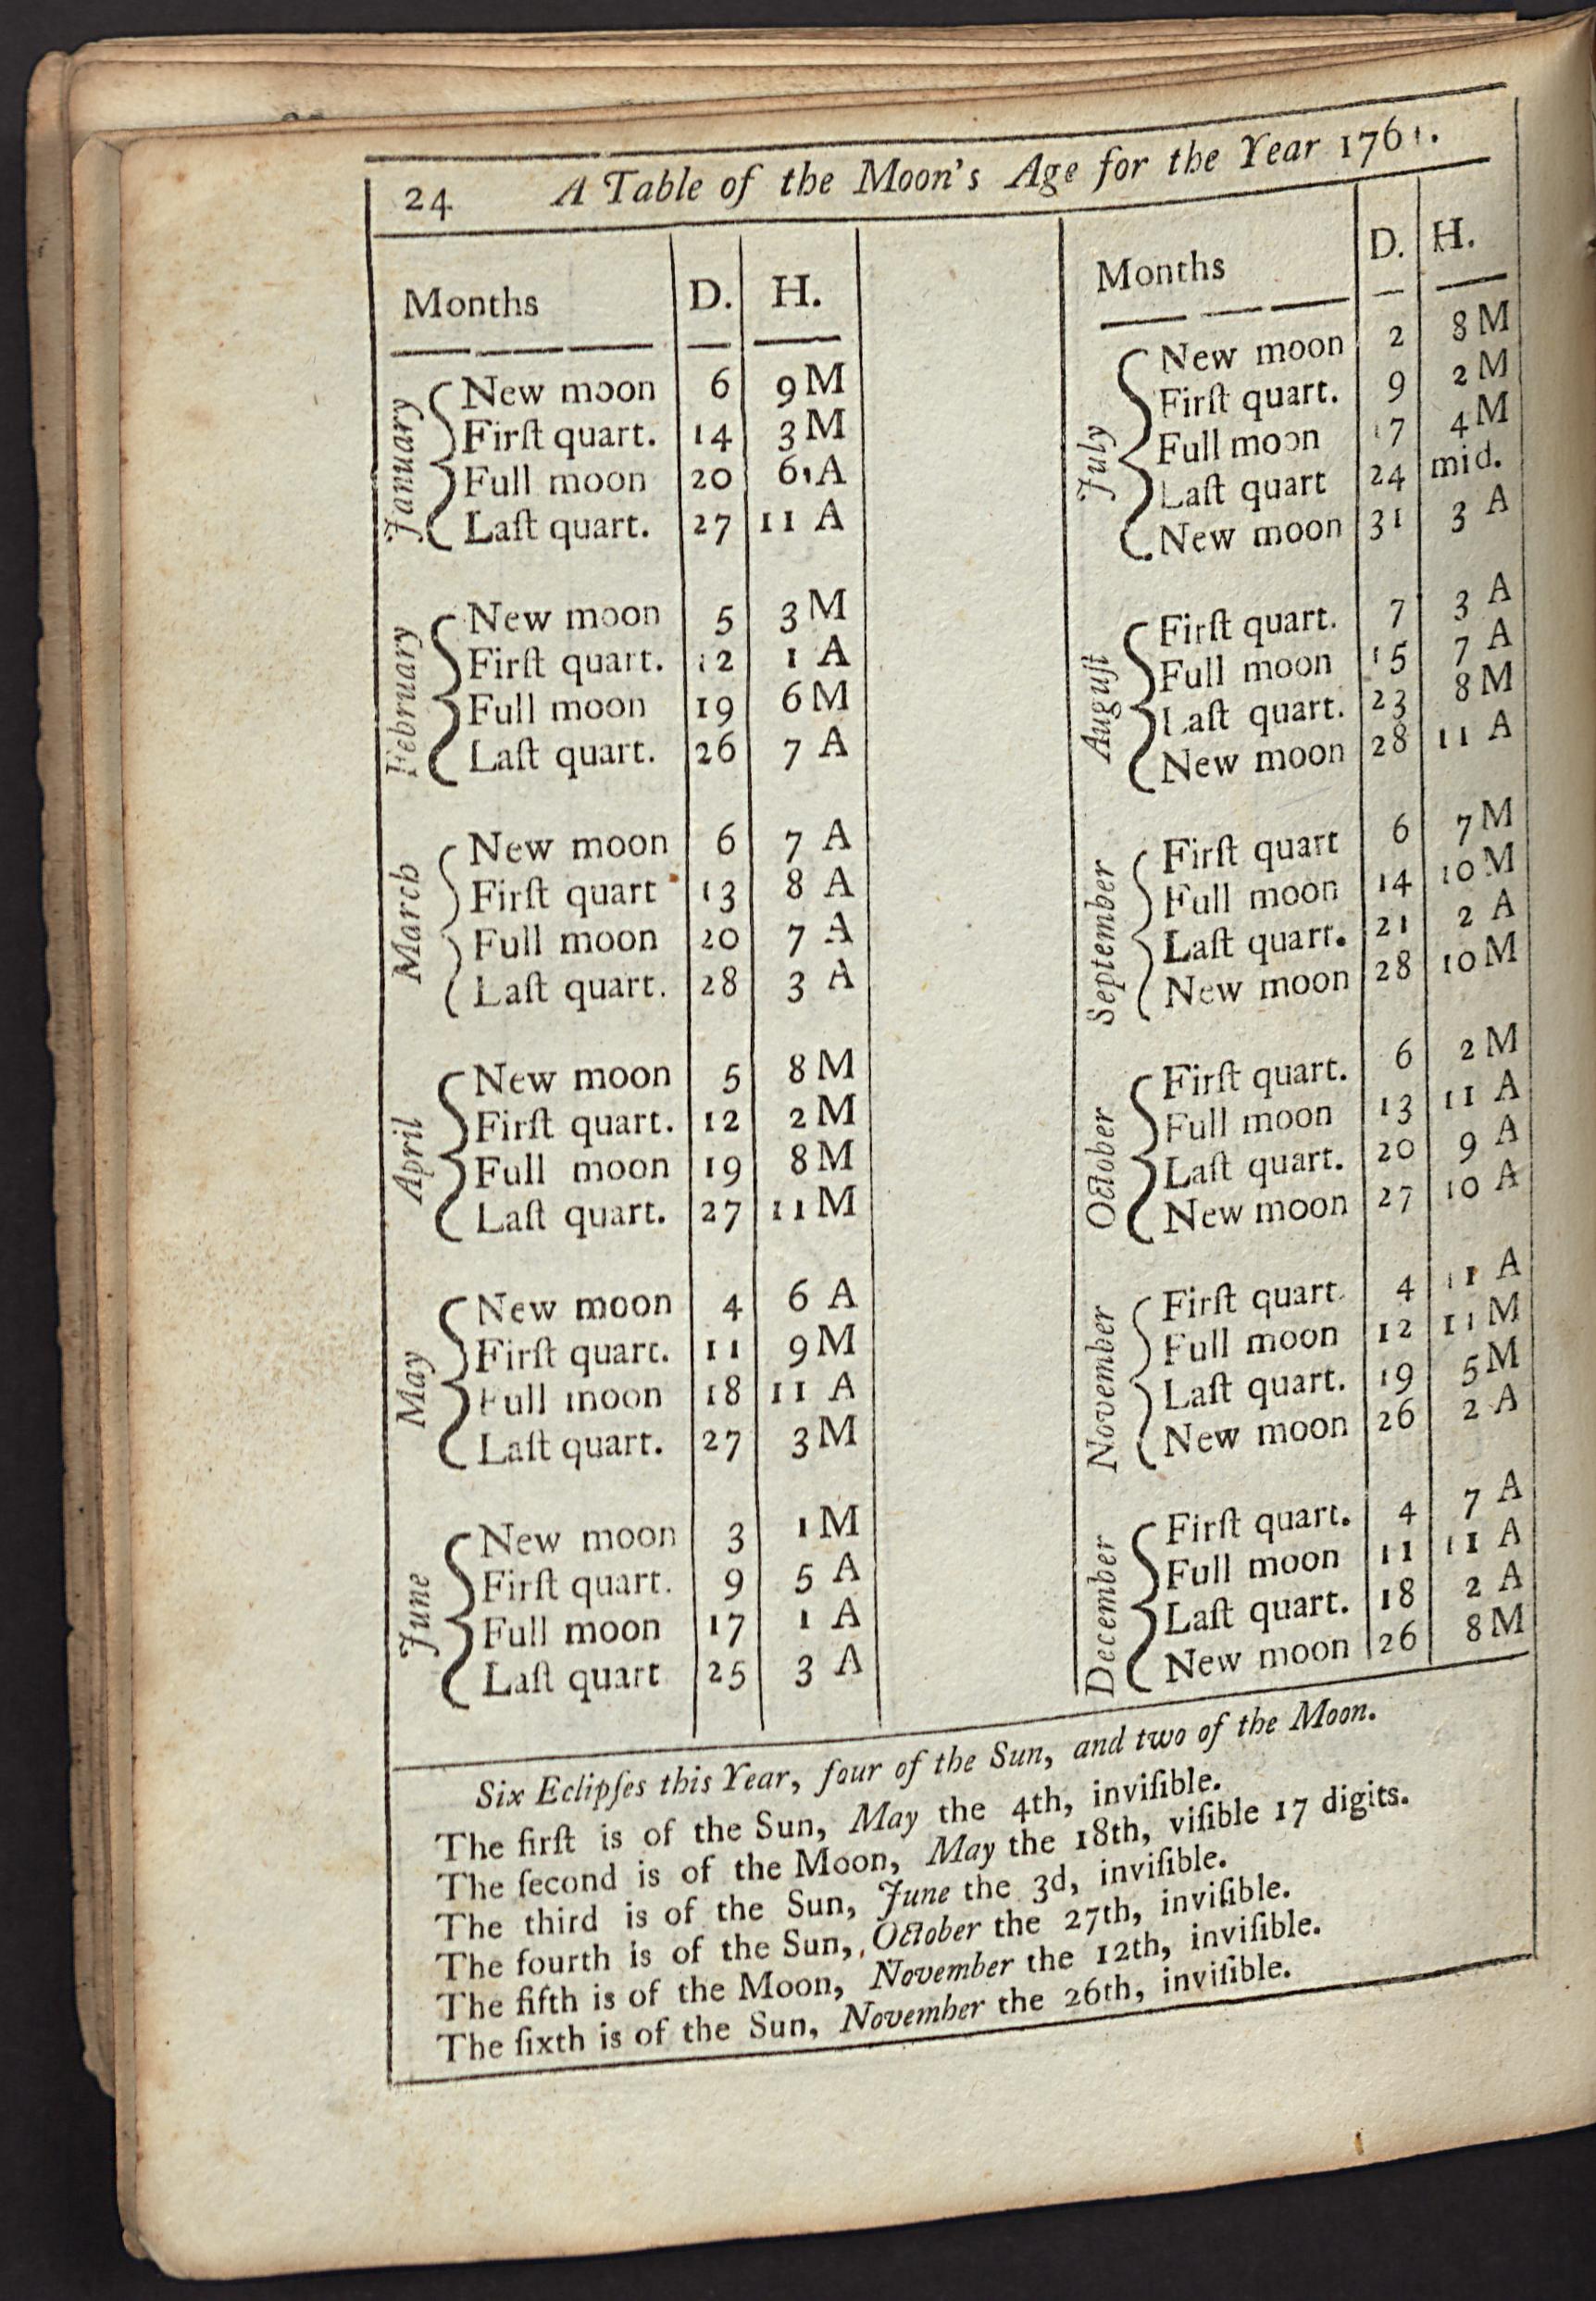 24 A Table of the Moon's Age for the Year 1761.
Months D. H.
January
New moon 6 9 M
Firſt quart. 14 3 M
Full moon 20 6 A
Laſt quart. 27 11 A
February
New moon 5 3 M
Firſt quart. 12 1 A
Full moon 19 6 M
Laſt quart. 26 7 A
March
New moon 6 7 A
Firſt quart 13 8 A
Full moon 20 7 A
Laſt quart. 28 3 A
April
New moon 5 8 M
Firſt quart. 12 2 M
Full moon 19 8 M
Laſt quart. 27 11 M
May
New moon 4 6 A
Firſt quart. 11 9 M
Full moon 18 11 A
Laſt quart. 27 3 M
June
New moon 3 1 M
Firſt quart. 9 5 A
Full moon 17 1 A
Laſt quart 25 3 A
Months D. H.
July
New moon 2 8 M
Firſt quart. 9 2 M
Full moon 17 4 M
Laſt quart 24 mid.
New moon 31 3 A
Auguſt
Firſt quart. 7 3 A
Full moon 15 7 A
Laſt quart. 23 8 M
New moon 28 11 A
September
Firſt quart 6 7 M
Full moon 14 10 M
Laſt quart. 21 2 A
New moon 28 10 M
October
Firſt quart. 6 2 M
Full moon 13 11 A
Laſt quart. 20 9 A
New moon 27 10 A
November
Firſt quart. 4 11 A
Full moon 12 11 M
Laſt quart. 19 5 M
New moon 26 2 A
December
Firſt quart. 4 7 A
Full moon 11 11 A
Laſt quart. 18 2 A
New moon 26 8 M
Six Eclipſes this Year, four of the Sun, and two of the Moon.
The firſt is of the Sun, May the 4th, inviſible.
The ſecond is of the Moon, May the 18th, viſible 17 digits.
The third is of the Sun, June the 3d, inviſible.
The fourth is of the Sun, October the 27th, inviſible.
The fifth is of the Moon, November the 12th, inviſible.
The ſixth is of the Sun, November the 26th, inviſible.